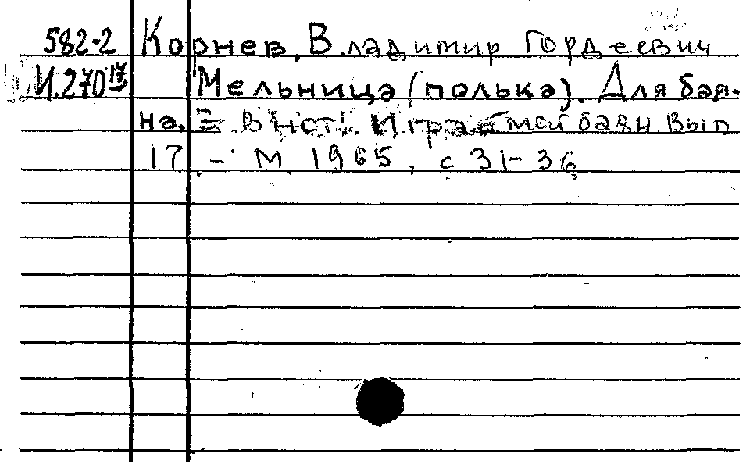 582-2 Корнев, Владимир Гордеевич
И.270 17 Мельница (полька). Для бая-
на. В нотн. Играй мой баян Вып
17 - М 1965, с 31-36